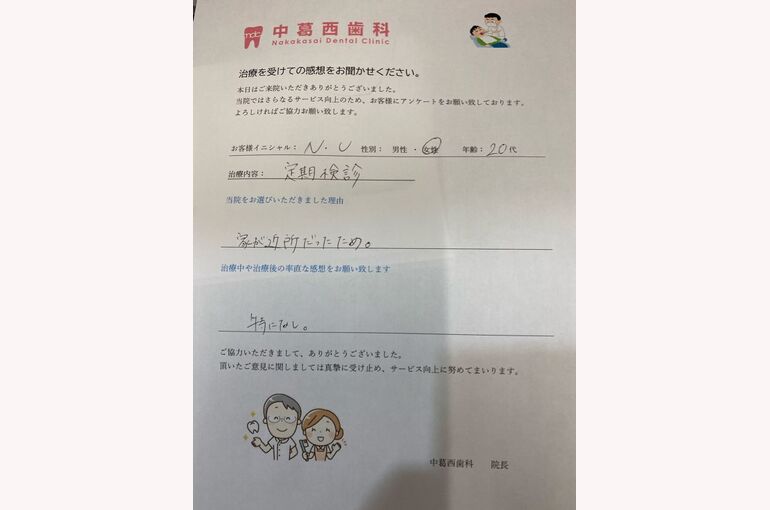 ndc 中葛西歯科
Nakakasai Dental Clinic
治療を受けての感想をお聞かせください。
本日はご来院いただきありがとうございました。
当院ではさらなるサービス向上のため、お客様にアンケートをお願い致しております。
よろしければご協力お願い致します。
お客様イニシャル： N・U 性別： 男性 ・ 女性 年齢：20代
治療内容： 定期検診
当院をお選びいただきました理由
家が近所だったため。
治療中や治療後の率直な感想をお願い致します
特になし。
ご協力いただきまして、ありがとうございました。
頂いたご意見に関しましては真摯に受け止め、サービス向上に努めてまいります。
中葛西歯科 院長